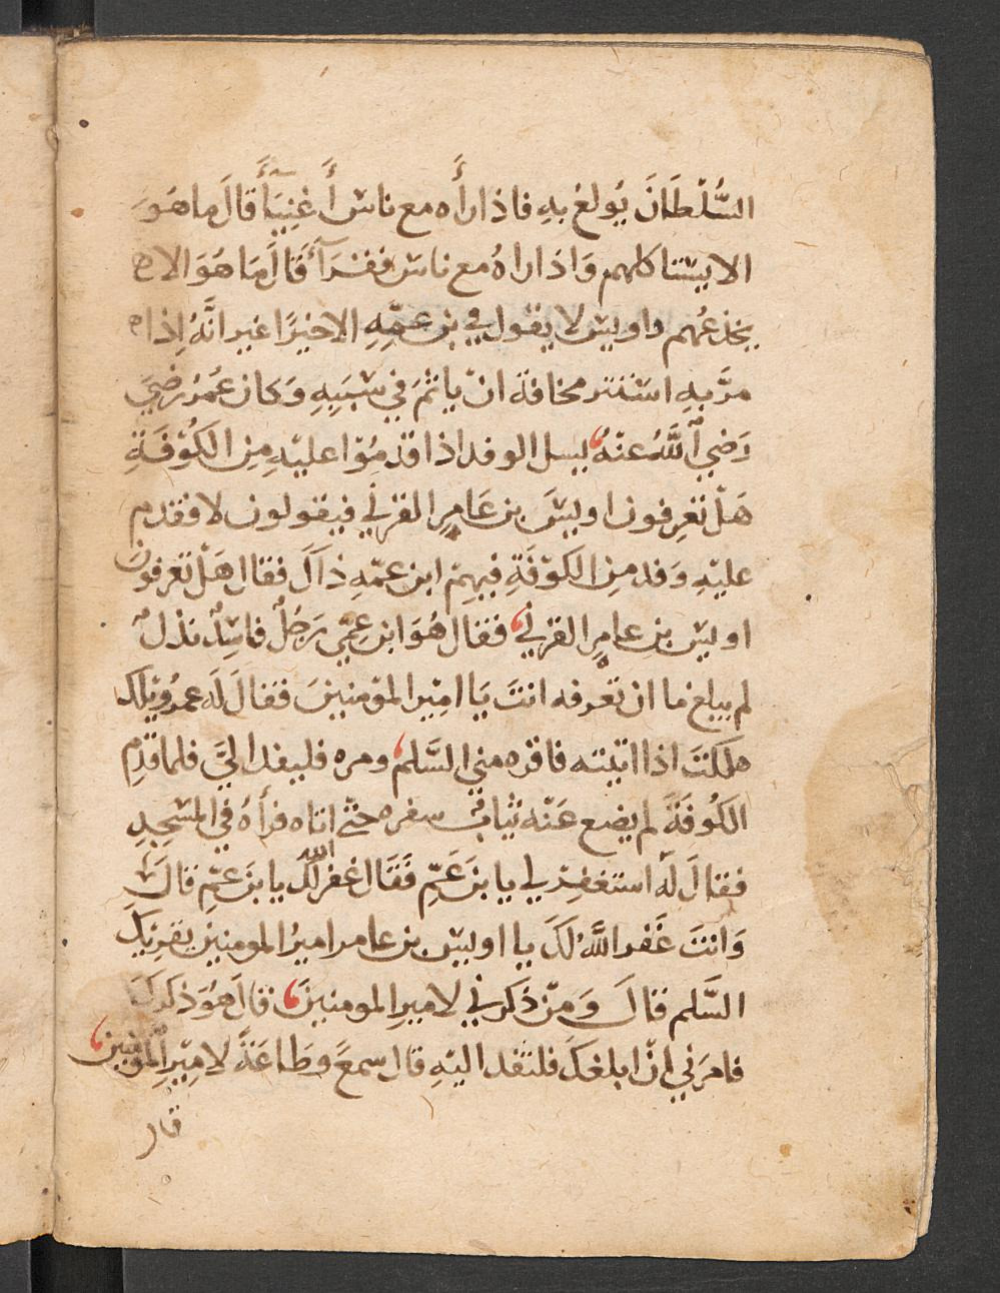 السُّلْطَانَ يُولعُ بهِ فاذا رأَه مع ناسٍ أَغنِيَأَ قَالَ ما هُوَ
الا يستاكلهم وَاذا راهُ مع ناس فقرَآءَ قَالَ مَا هُوَ الا
يخدعُهم واويس لا يقول في بن عمّهِ الا خيرًا غير انَّهُ اِذا
مرَّ بهِ استتر مخافة ان ياثمَ في سَببِهِ وَكان عُمَرُ رضيَ
رَضي اللَّهُ عنهُ يسل الوفد اذا قدِمُوا عليْهِ مِن الكُوْفَةِ
هَلْ تعرِفون اويسَ بن عَامِرِ القرني فيقولون لا فقدم
عليْهِ وَفد مِن الكوْفَةِ فيهِمْ ابن عمّهِ ذَاكَ فقال هَلْ تعرفون
اويس بن عامِرِ القرني فقال هُوَ ابن عِمّي رَجُلٌ فاسِدٌ نذلٌ
لم يبلغ ما ان تعرفه انتَ يَا امِيْر المؤمنينَ فقالَ لَه عمرُ ويْلك
هلكتَ اذا اتيته فاقره مني السَّلم ومره فليفد اليَّ فلما قدِم
الكُوفَةَ لم يضع عَنْه ثيابُ سفره حتى اتاه فرأهُ في المسْجِدِ
فقالَ لَهُ استغفِرْ لي يا بنَ عَمِّ فَقَال غفر الله لك يا بنَ عَمِّ قالَ
وَانتَ غَفر اللَّهُ لكَ يا اويس بن عامر اميرُ المومنين يقريك
السَّلم قالَ وَمنْ ذكرني لاميرِ المومنينَ قالَ هُوَ ذكرك
فامرَني انْ ابلغكَ فلتفد اليْهِ قال سمعَ وطَاعَةً لامِيْرِ المؤمنين
قال